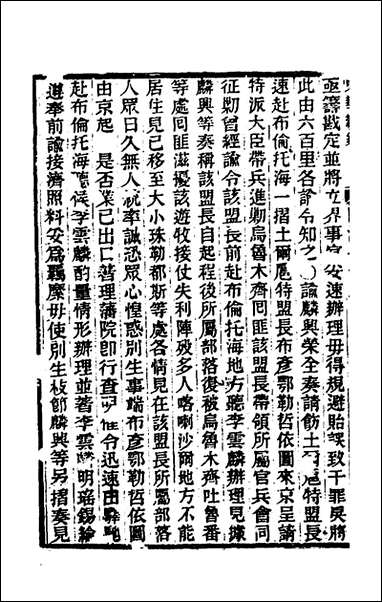 亟籌戡定並將立界事宜安速辦理毋得規避貽誤致干罪戾將
此由六百里各諭令知之○諭麟興榮全奏請飭土爾扈特盟長
速赴布倫托海一摺土爾扈特盟長布彥鄂勒哲依圖來京呈請
特派大臣帶兵進勦烏魯木齊回匪該盟長帶領所屬官兵會同
征勦曾經諭令該盟長前赴布倫托海地方聽李雲麟辦理見據
麟興等奏稱該盟長自起程後所屬部落復被烏魯木齊吐魯番
等處回匪滋擾該遊牧接仗失利陣歿多人喀喇沙爾地方不能
居住見已移至大小珠勒都斯等處各情見在該盟長所屬部落
人眾日久無人統率誠恐眾心惶惑別生事端布彥鄂勒哲依圖
由京起 是否業已出口著理藩院即行查 令迅速由驛馳
赴布倫托海聽候李雲麟酌量情形辦理並著李雲麟明瑤錫綸
遵奉前諭接濟照料妥為羈縻毋使別生枝節麟興等另摺奏見